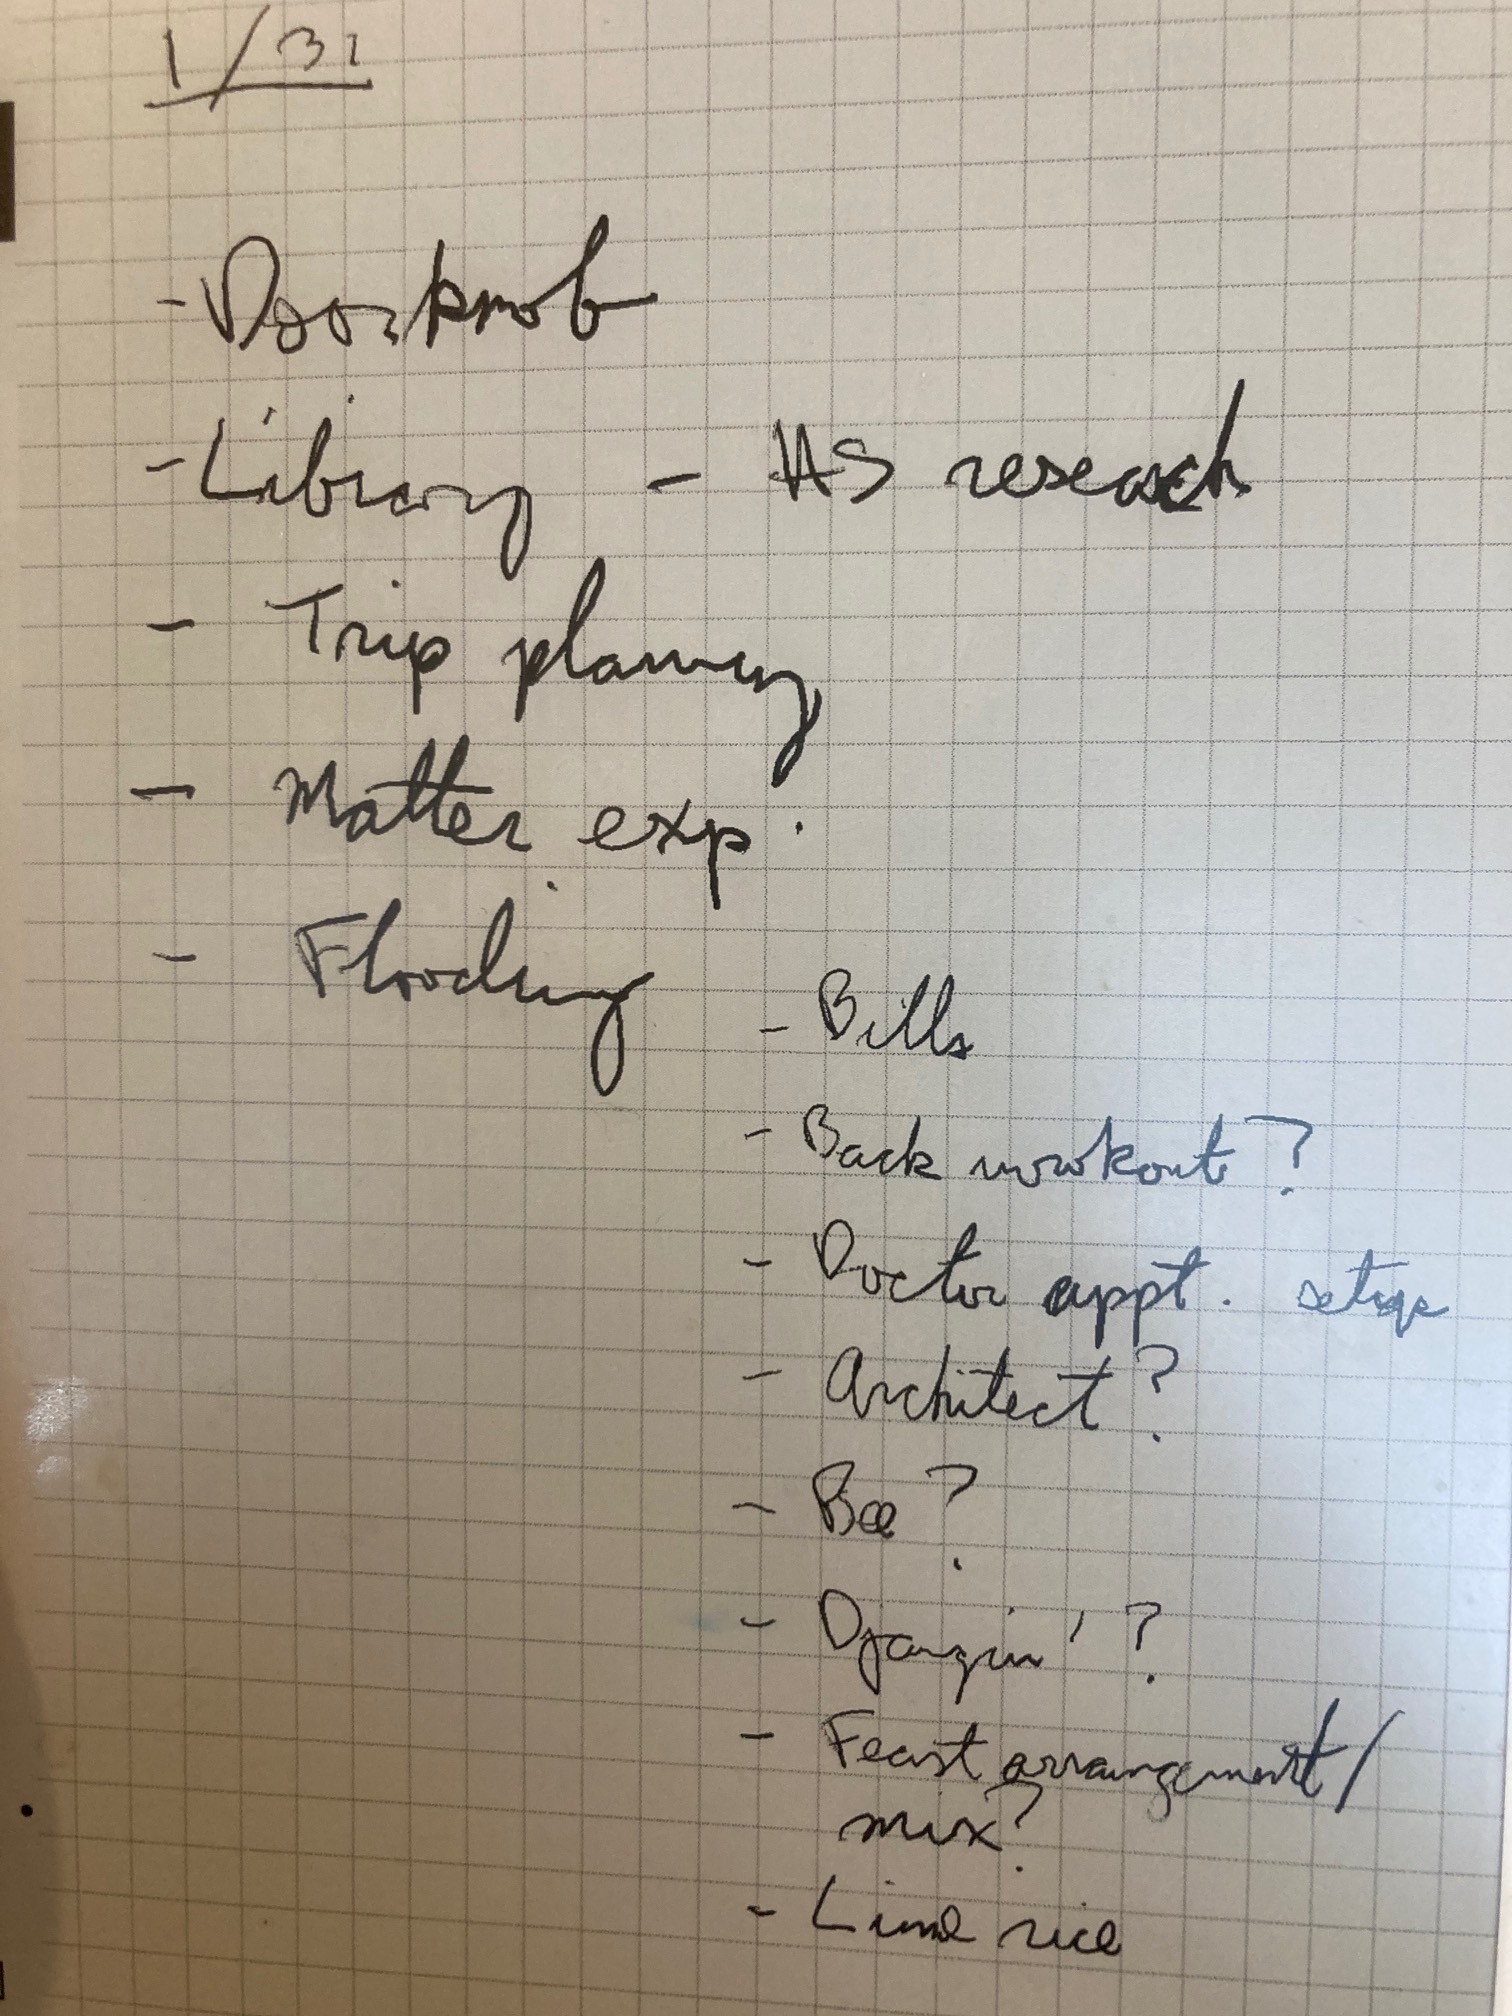 1/31
- Doorknob
- Library - HS research
- Trip planning
- Matter exp.
- Flooding
- Bills
- Back workout?
- Doctor appt. setups
- Architect?
- Bee?
- Djangin'?
- Feast arrangement/
mix?
- Lime rice